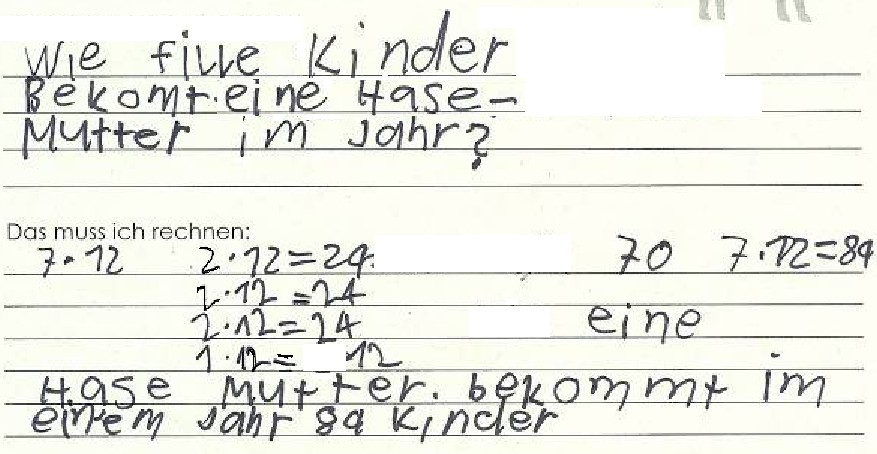 Wie fille Kinder
Bekomt eine Hase-
Mutter im Jahr?
Das muss ich rechnen:
7·12 2·12=24 70 7·12=84
2·12=24
2·12=24 eine
1·12= 12
Hase Mutter. bekommt im
einem Jahr 84 Kinder